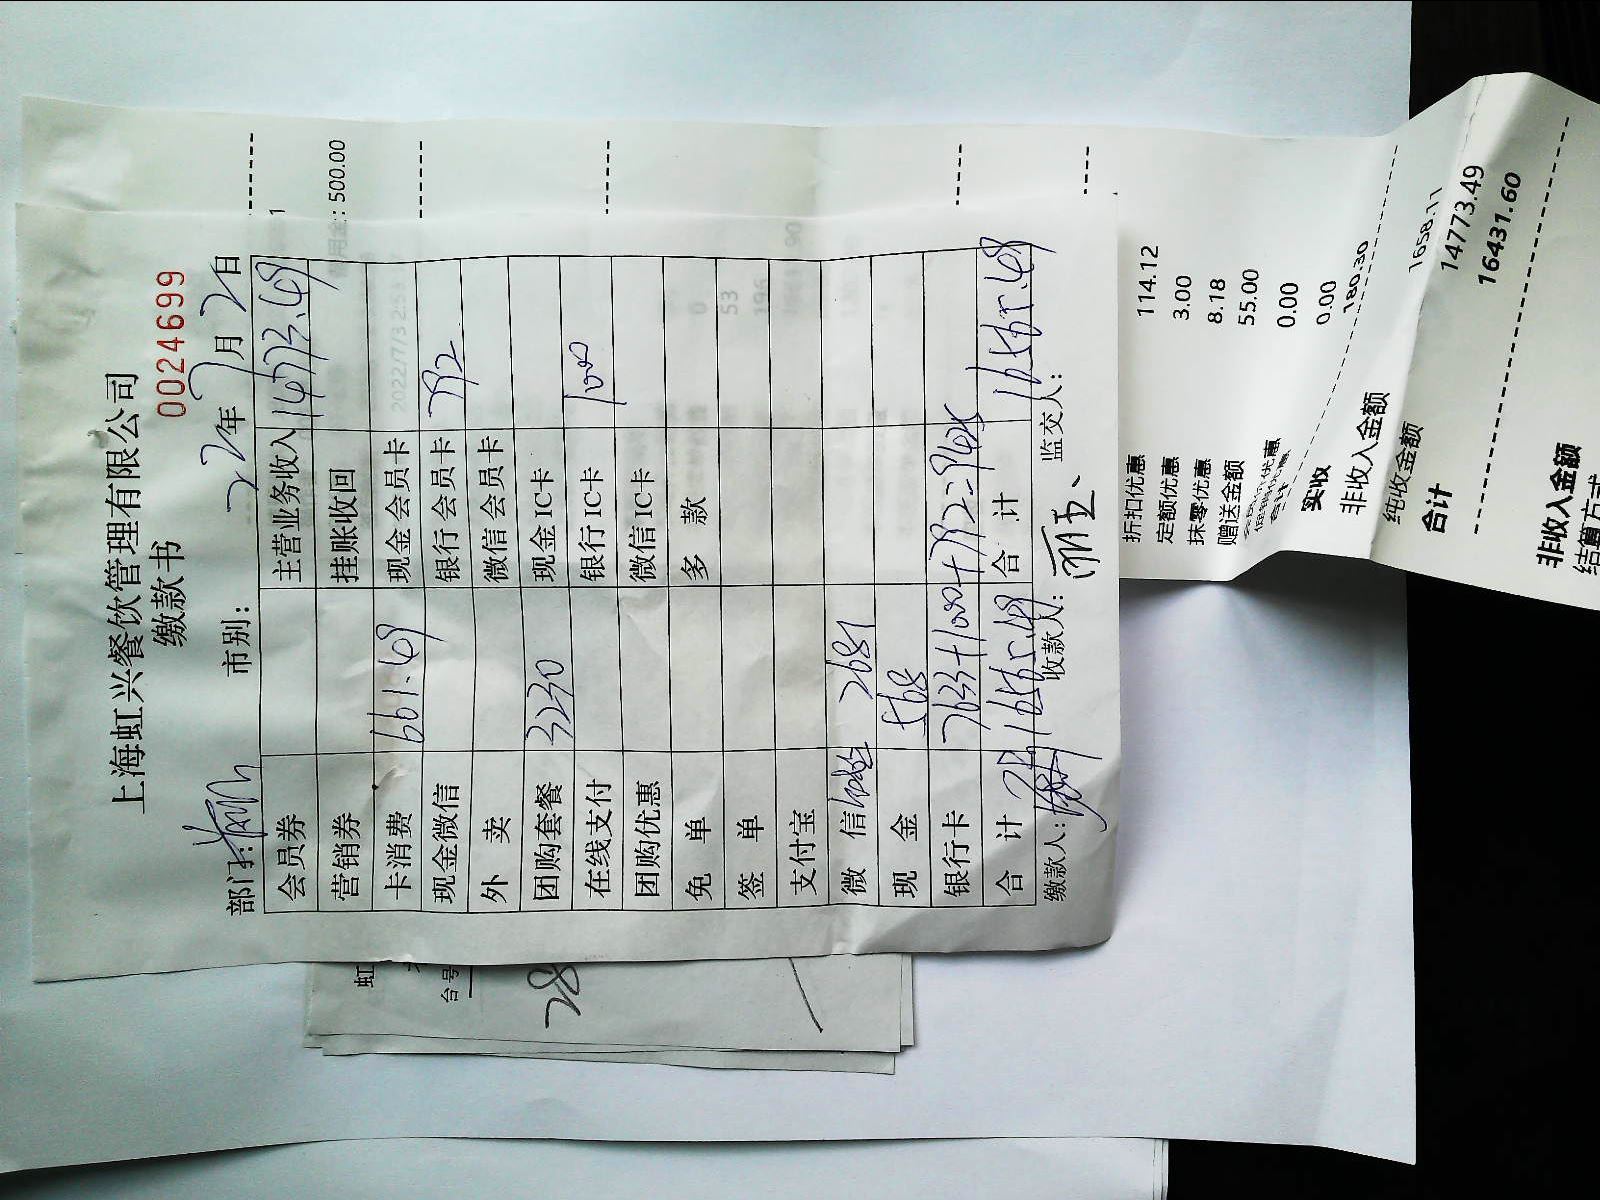 上海虹兴餐饮管理有限公司
缴款书
0024699
部门: 市别: 22年7月2日
会员券 主营业务收入 14773.49
营销券 挂账收回
卡消费 661.49 现金会员卡
现金微信 银行会员卡 792
外 卖 微信会员卡
团购套餐 3230 现金IC卡
在线支付 银行IC卡 1000
团购优惠 微信IC卡
免 单 多 款
签 单
支付宝
微 信 2681
现 金 568
银行卡 7633+1000+792=9425
合 计 16565.49 合 计 16565.49
缴款人: 收款人: 监交人:
: 500.00
2022/7/3 2:53
折扣优惠 114.12
定额优惠 3.00
抹零优惠 8.18
赠送金额 55.00
0.00
0.00
180.30
实收
非收入金额 1658.11
纯收金额 14773.49
合计 16431.60
非收入金额
结算方式
虹
台号
28